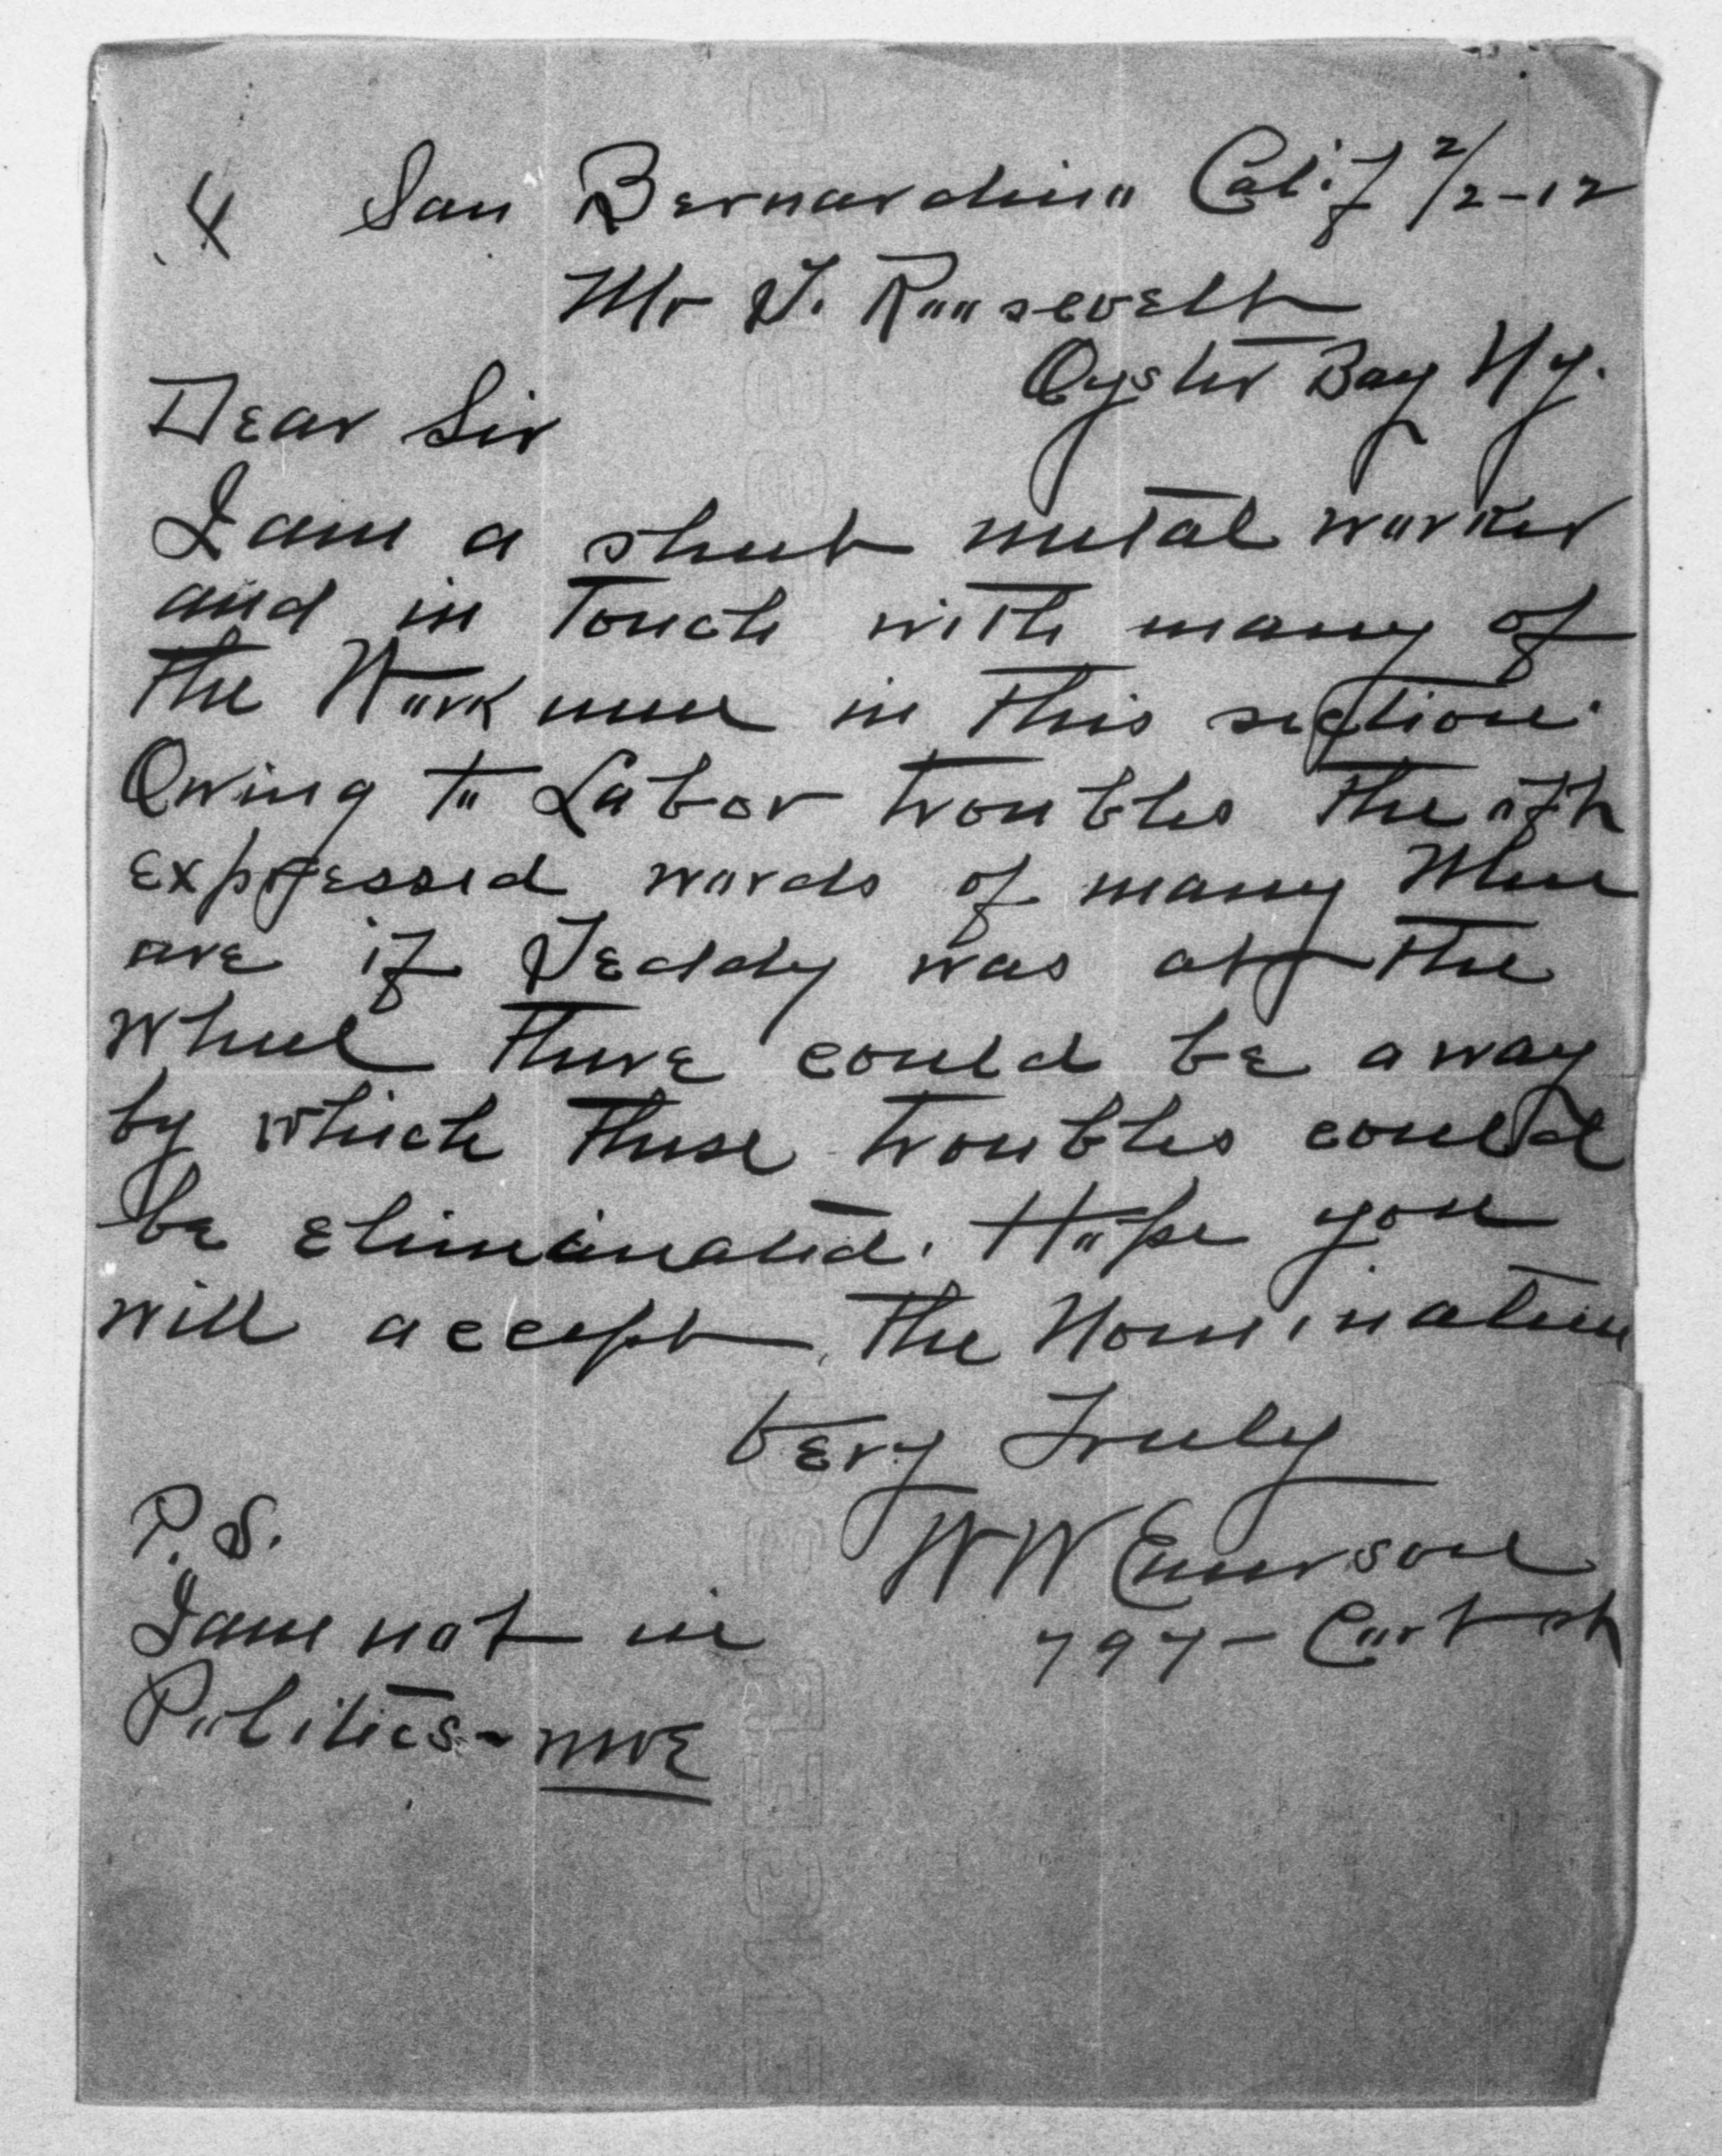 4 San Bernardino Calif 2/2-12
Mr T. Roosevelt
Oyster Bay N y.
Dear Sir
I am a sheet metal worker
and in Touch with many of
the Workmen in this section.
Owing to Labor troubles the oft
expressed words of many Men
are if Teddy was at the
wheel there could be a way
by which these troubles could
be eliminated. Hope you
will accept the Nomination
Very Truly
W W Emerson
797 - Court st
P. S.
I am not in
Politics - WWE